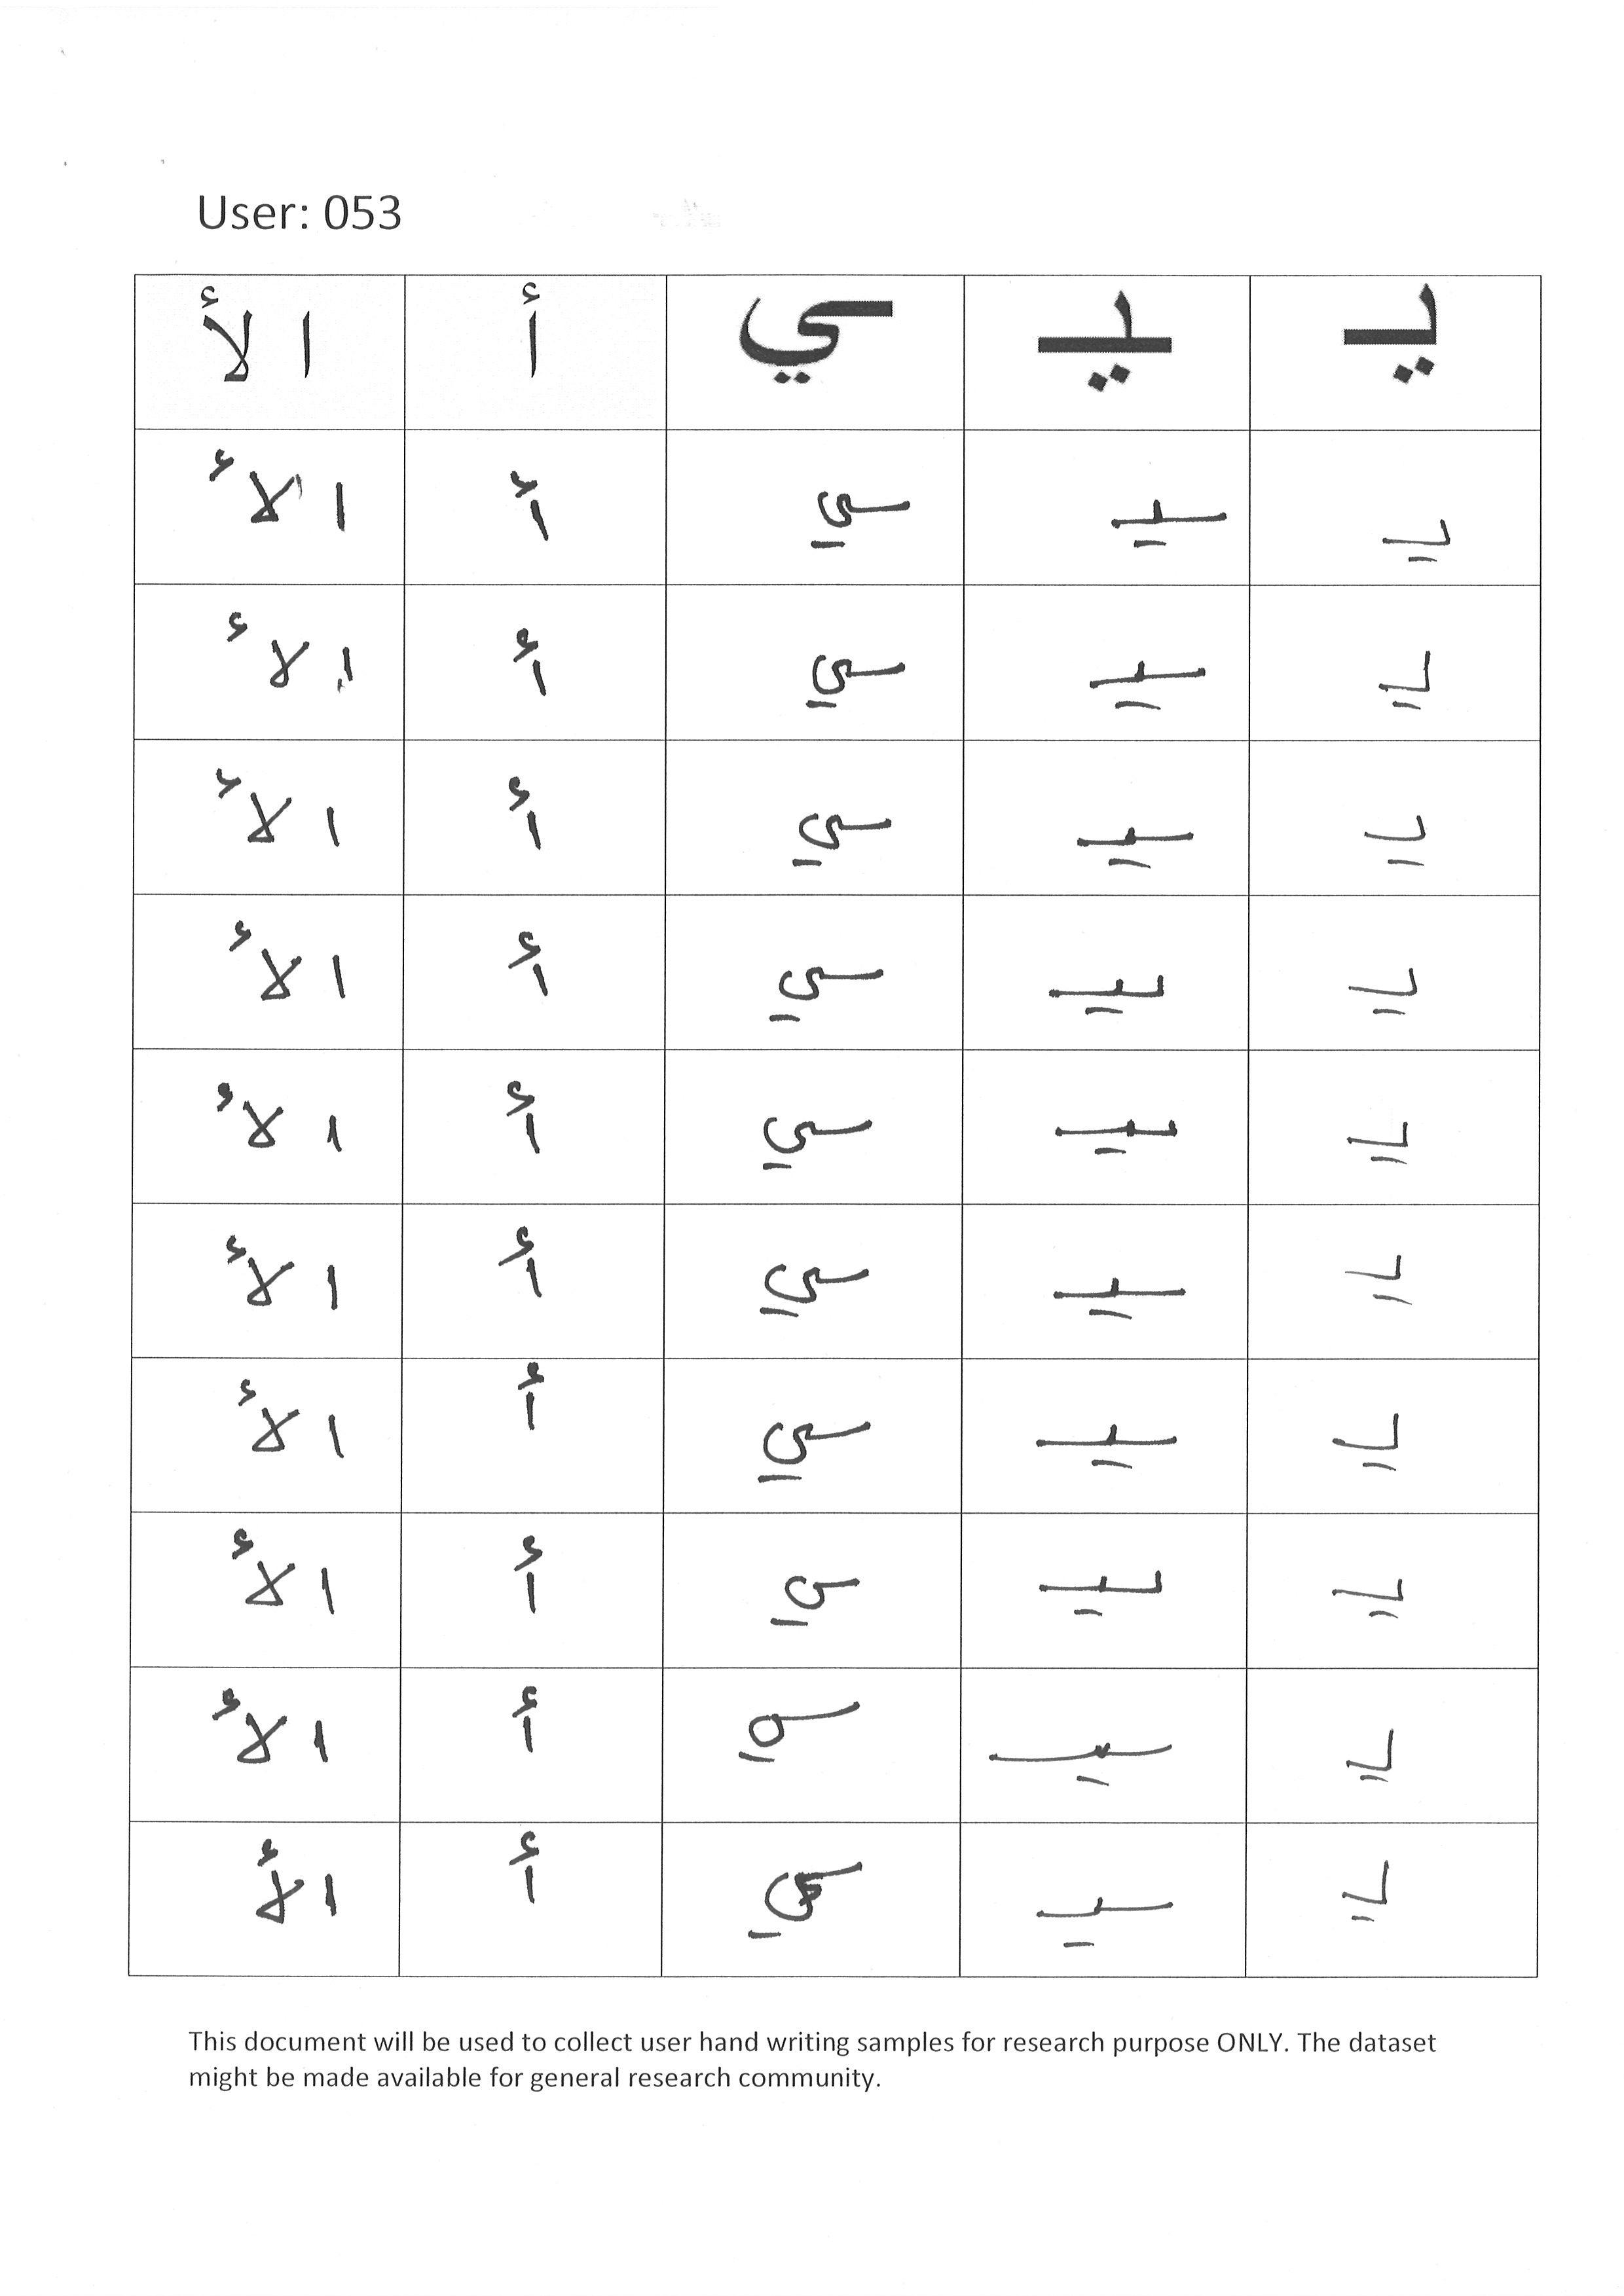 User: 053
يـ ـيـ ـي أ الأ
يـ ـيـ ـي أ الأ
يـ ـيـ ـي أ الأ
يـ ـيـ ـي أ الأ
يـ ـيـ ـي أ الأ
يـ ـيـ ـي أ الأ
يـ ـيـ ـي أ الأ
يـ ـيـ ـي أ الأ
يـ ـيـ ـي أ الأ
يـ ـيـ ـي أ الأ
يـ ـيـ ـي أ الأ
This document will be used to collect user hand writing samples for research purpose ONLY. The dataset
might be made available for general research community.